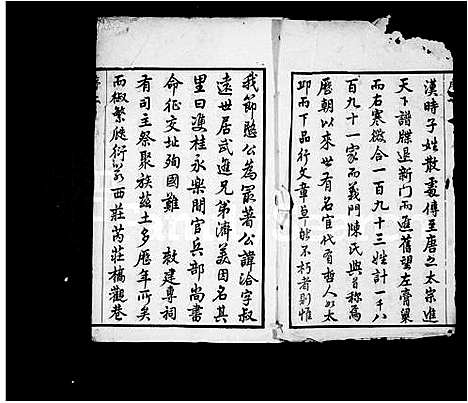 漢時子姓散處傳至唐之太宗進
天下譜牒退新門而進舊望左膏粱
而右寒微合一百九十三姓計一千八
百九十一家而義門陳氏與首稱焉
歷朝以來世有名宦代有哲人如太
邱而下品行文章卓然不朽者則惟
我節愍公為最著公諱洽字叔
遠世居武進兄弟濟美因名其
里曰雙桂永樂間官兵部尚書
命征交址殉國難 敕建專祠
有司主祭聚族茲土多歷年所矣
而椒繁瓞衍若西莊芮莊橋觀巷